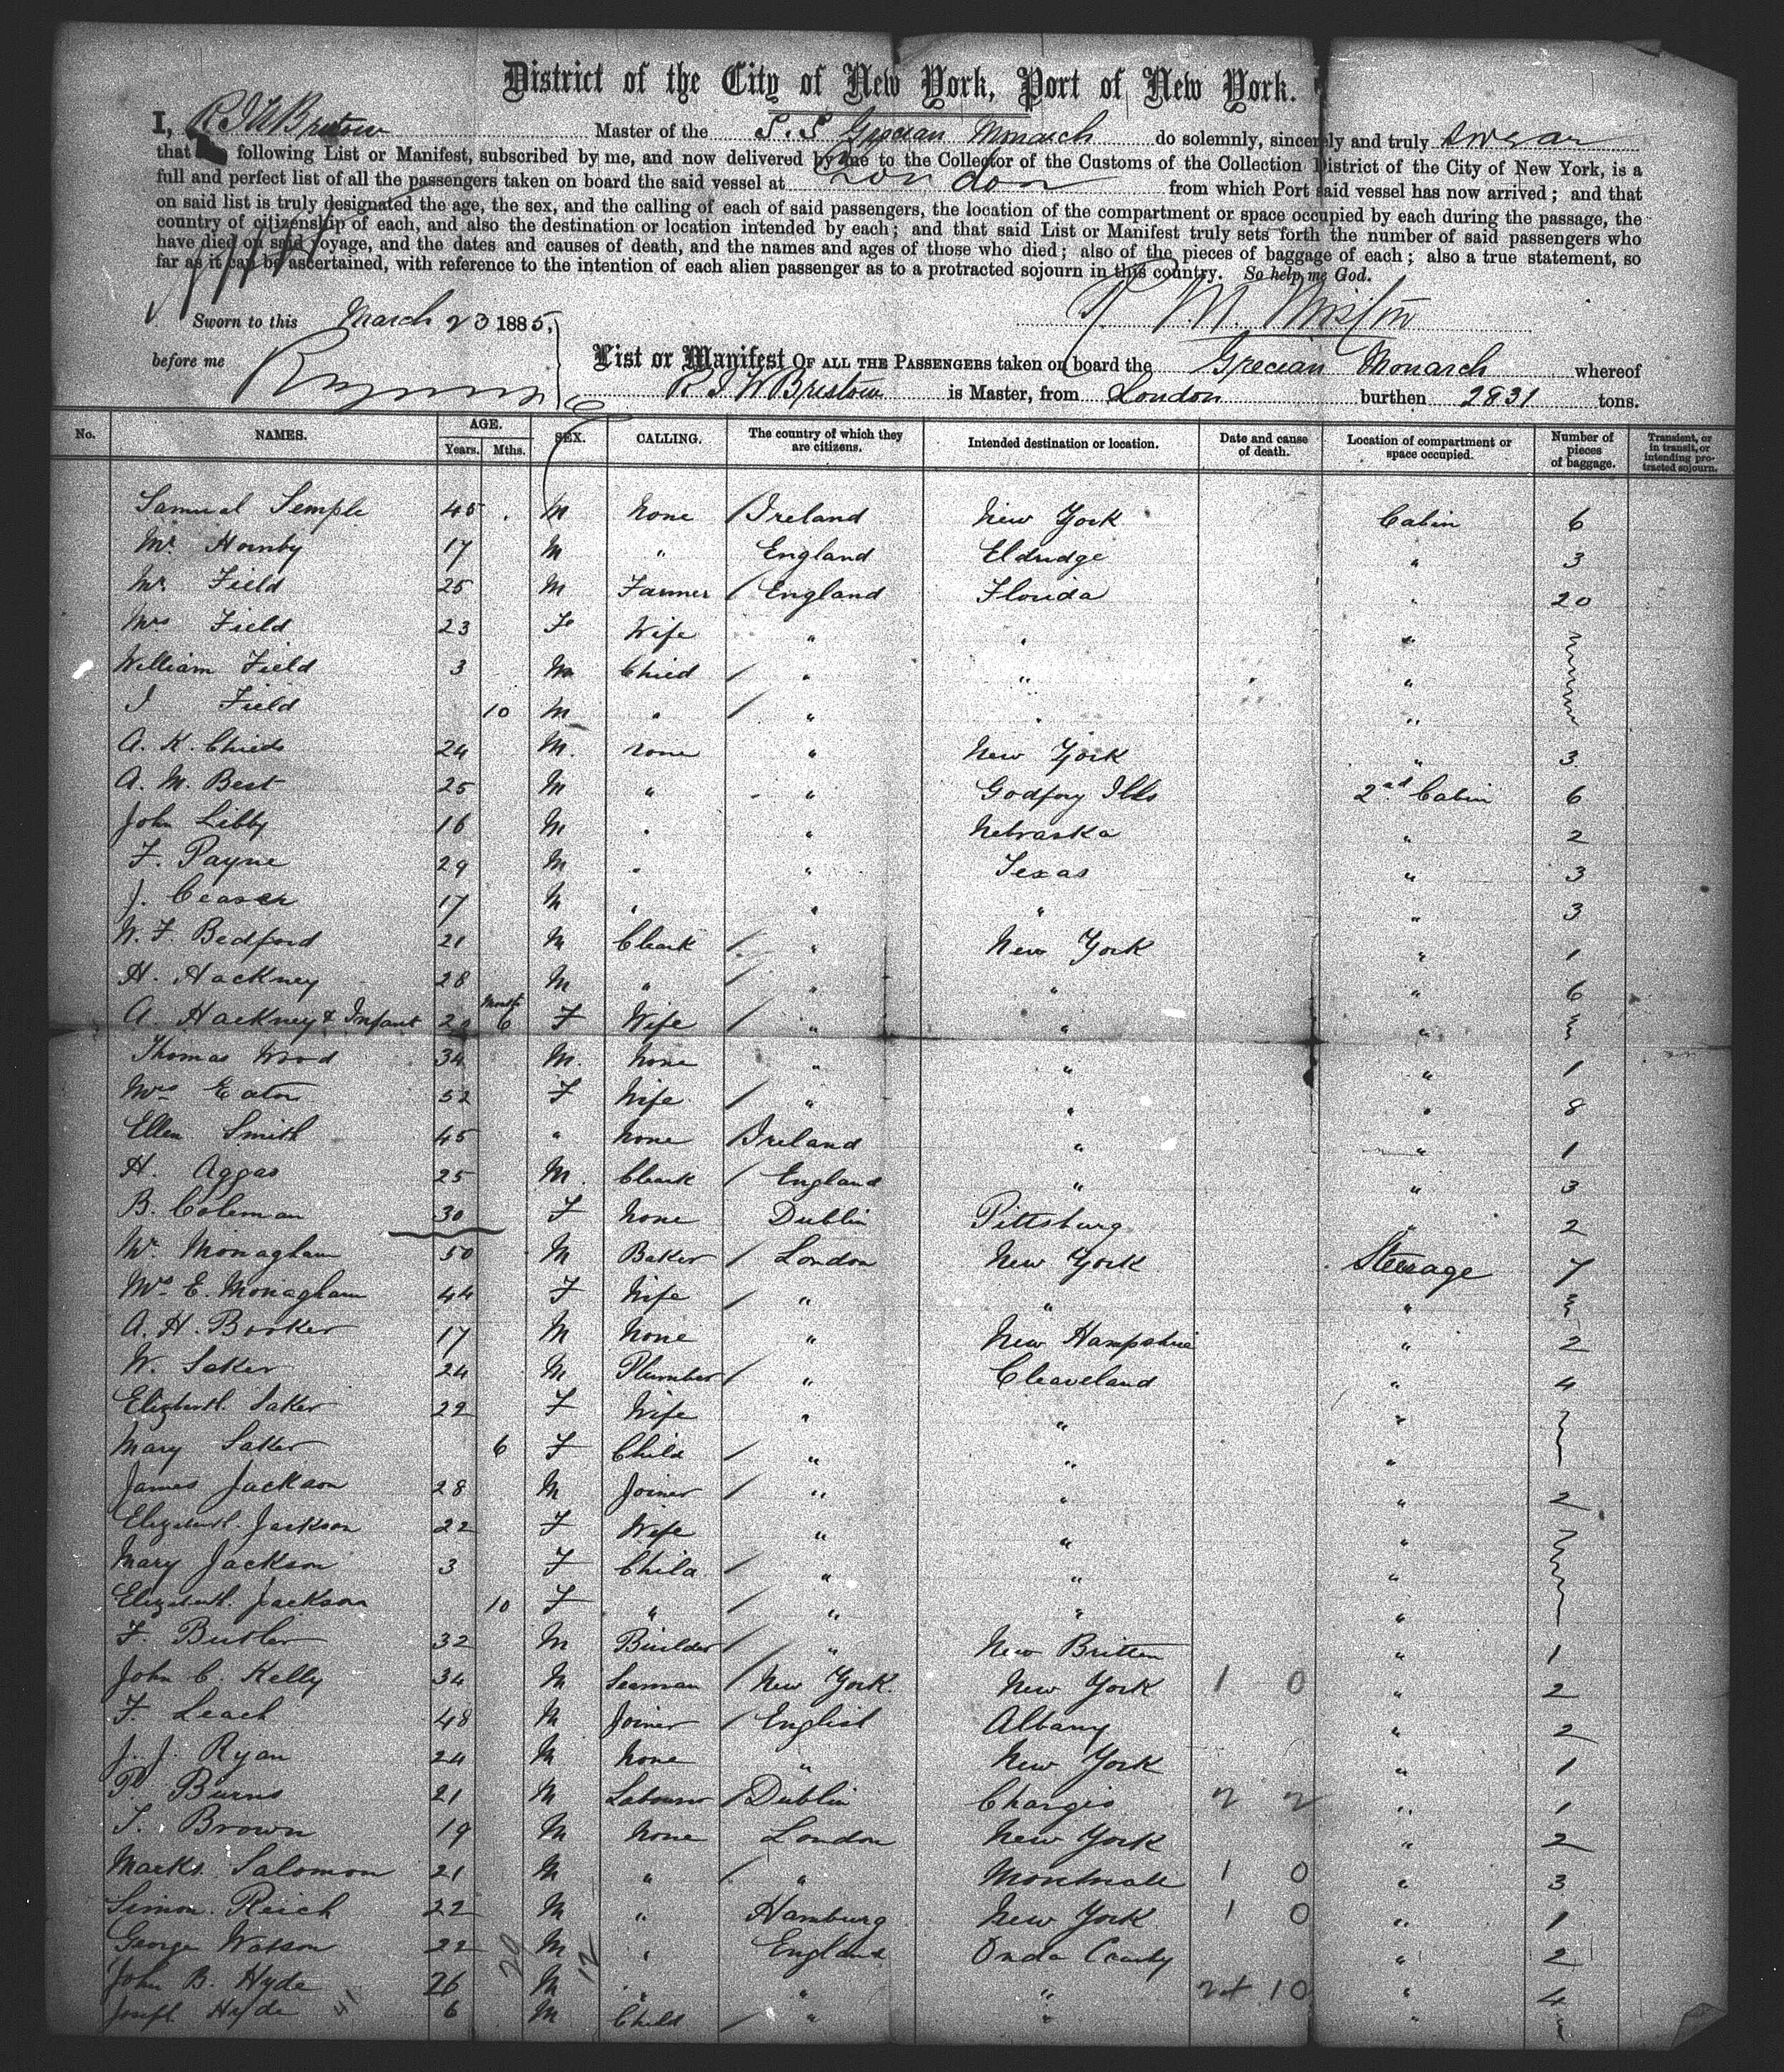 District of the City of New York, Port of New York.
I, R J W Bristow Master of the S.S Grecian Monarch do solemnly, sincerely and truly swear
that following List or Manifest, subscribed by me, and now delivered by me to the Collector of the Customs of the Collection District of the City of New York, is a
full and perfect list of all the passengers taken on board the said vessel at London from which Port said vessel has now arrived; and that
on said list is truly designated the age, the sex, and the calling of each of said passengers, the location of the compartment or space occupied by each during the passage, the
country of citizenship of each, and also the destination or location intended by each; and that said List or Manifest truly sets forth the number of said passengers who
have died on said voyage, and the dates and causes of death, and the names and ages of those who died; also of the pieces of baggage of each; also a true statement, so
far as it can be ascertained, with reference to the intention of each alien passenger as to a protracted sojourn in this country. So help me God.
Sworn to this March 23 1885,
before me
List or Manifest OF ALL THE PASSENGERS taken on board the Grecian Monarch whereof
R J W Bristow is Master, from London burthen 2931 tons.
No. NAMES. AGE. Years. Mths. SEX. CALLING. The country of which they are citizens. Intended destination or location. Date and cause of death. Location of compartment or space occupied. Number of pieces of baggage. Transient, or in transit, or intending protracted sojourn.
Samuel Semple 45 M None Ireland New York Cabin 6
Mr Hornby 17 M " England Eldridge " 3
Mr. Field 25 M Farmer England Florida " 20
Mrs Field 23 Fe Wife " " "
William Field 3 M Chied " " "
I Field 10 M " " " "
A. K. Chieds 24 M. none " New York " 3
A. M. Best 25 M " " Godfrey Ills 2nd Cabin 6
John Libby 16 M " " Nebraska " 2
F. Payne 29 M " " Texas " 3
J. 17 M " " " " 3
W. F. Bedford 21 M Cleark " New York " 1
H. Hackney 28 M " " " " 6
A. Hackney & Infant Months 6 F Wife " " "
Thomas Wood 34 M. None " " " 1
Mrs Eaton 52 F Wife " " " 8
Ellen Smith 45 " None Ireland " " 1
H. Aggas 25 M. Cleark England " " 3
B. Coleman 30 F None Dublin Pittsburg " 2
Mr. Monagham 50 M Baker London New York Steerage 7
Mrs E. Monagham 44 F Wife " " "
A. H. Booker 17 M None " New Hampshire " 2
W. Saker 24 M Plumber " Cleaveland " 4
Elizberth. Saker 22 F Wife " " "
Mary Saker 6 F Child " " "
James Jackson 28 M Joiner " " " 2
Elizaberth. Jackson 22 F Wife " " "
Mary Jackson 3 F Child " " "
Elizaberth. Jackson 10 F " " " "
F. Butler 32 M Builder " New Britten " 1
John C. Kelly 34 M Seaman New York. New York 1 0 " 2
F. Leach 48 M Joiner English Albany " 2
J. J. Ryan 24 M None " New York " 1
P. Burns 21 M Labourer Dublin Chargis 2 2 " 1
T. Brown 19 M None London New York " 2
Marks. Salomon 21 M " " Montreale 1 0 " 3
Simon. Reich 22 M " Hamburg New York 1 0 " 1
George Watson 22 M " England Onda County " 2
John B. Hyde 26 M " " " 24 10 " 4
Joseph Hyde 6 M Child " " "
29 12 41